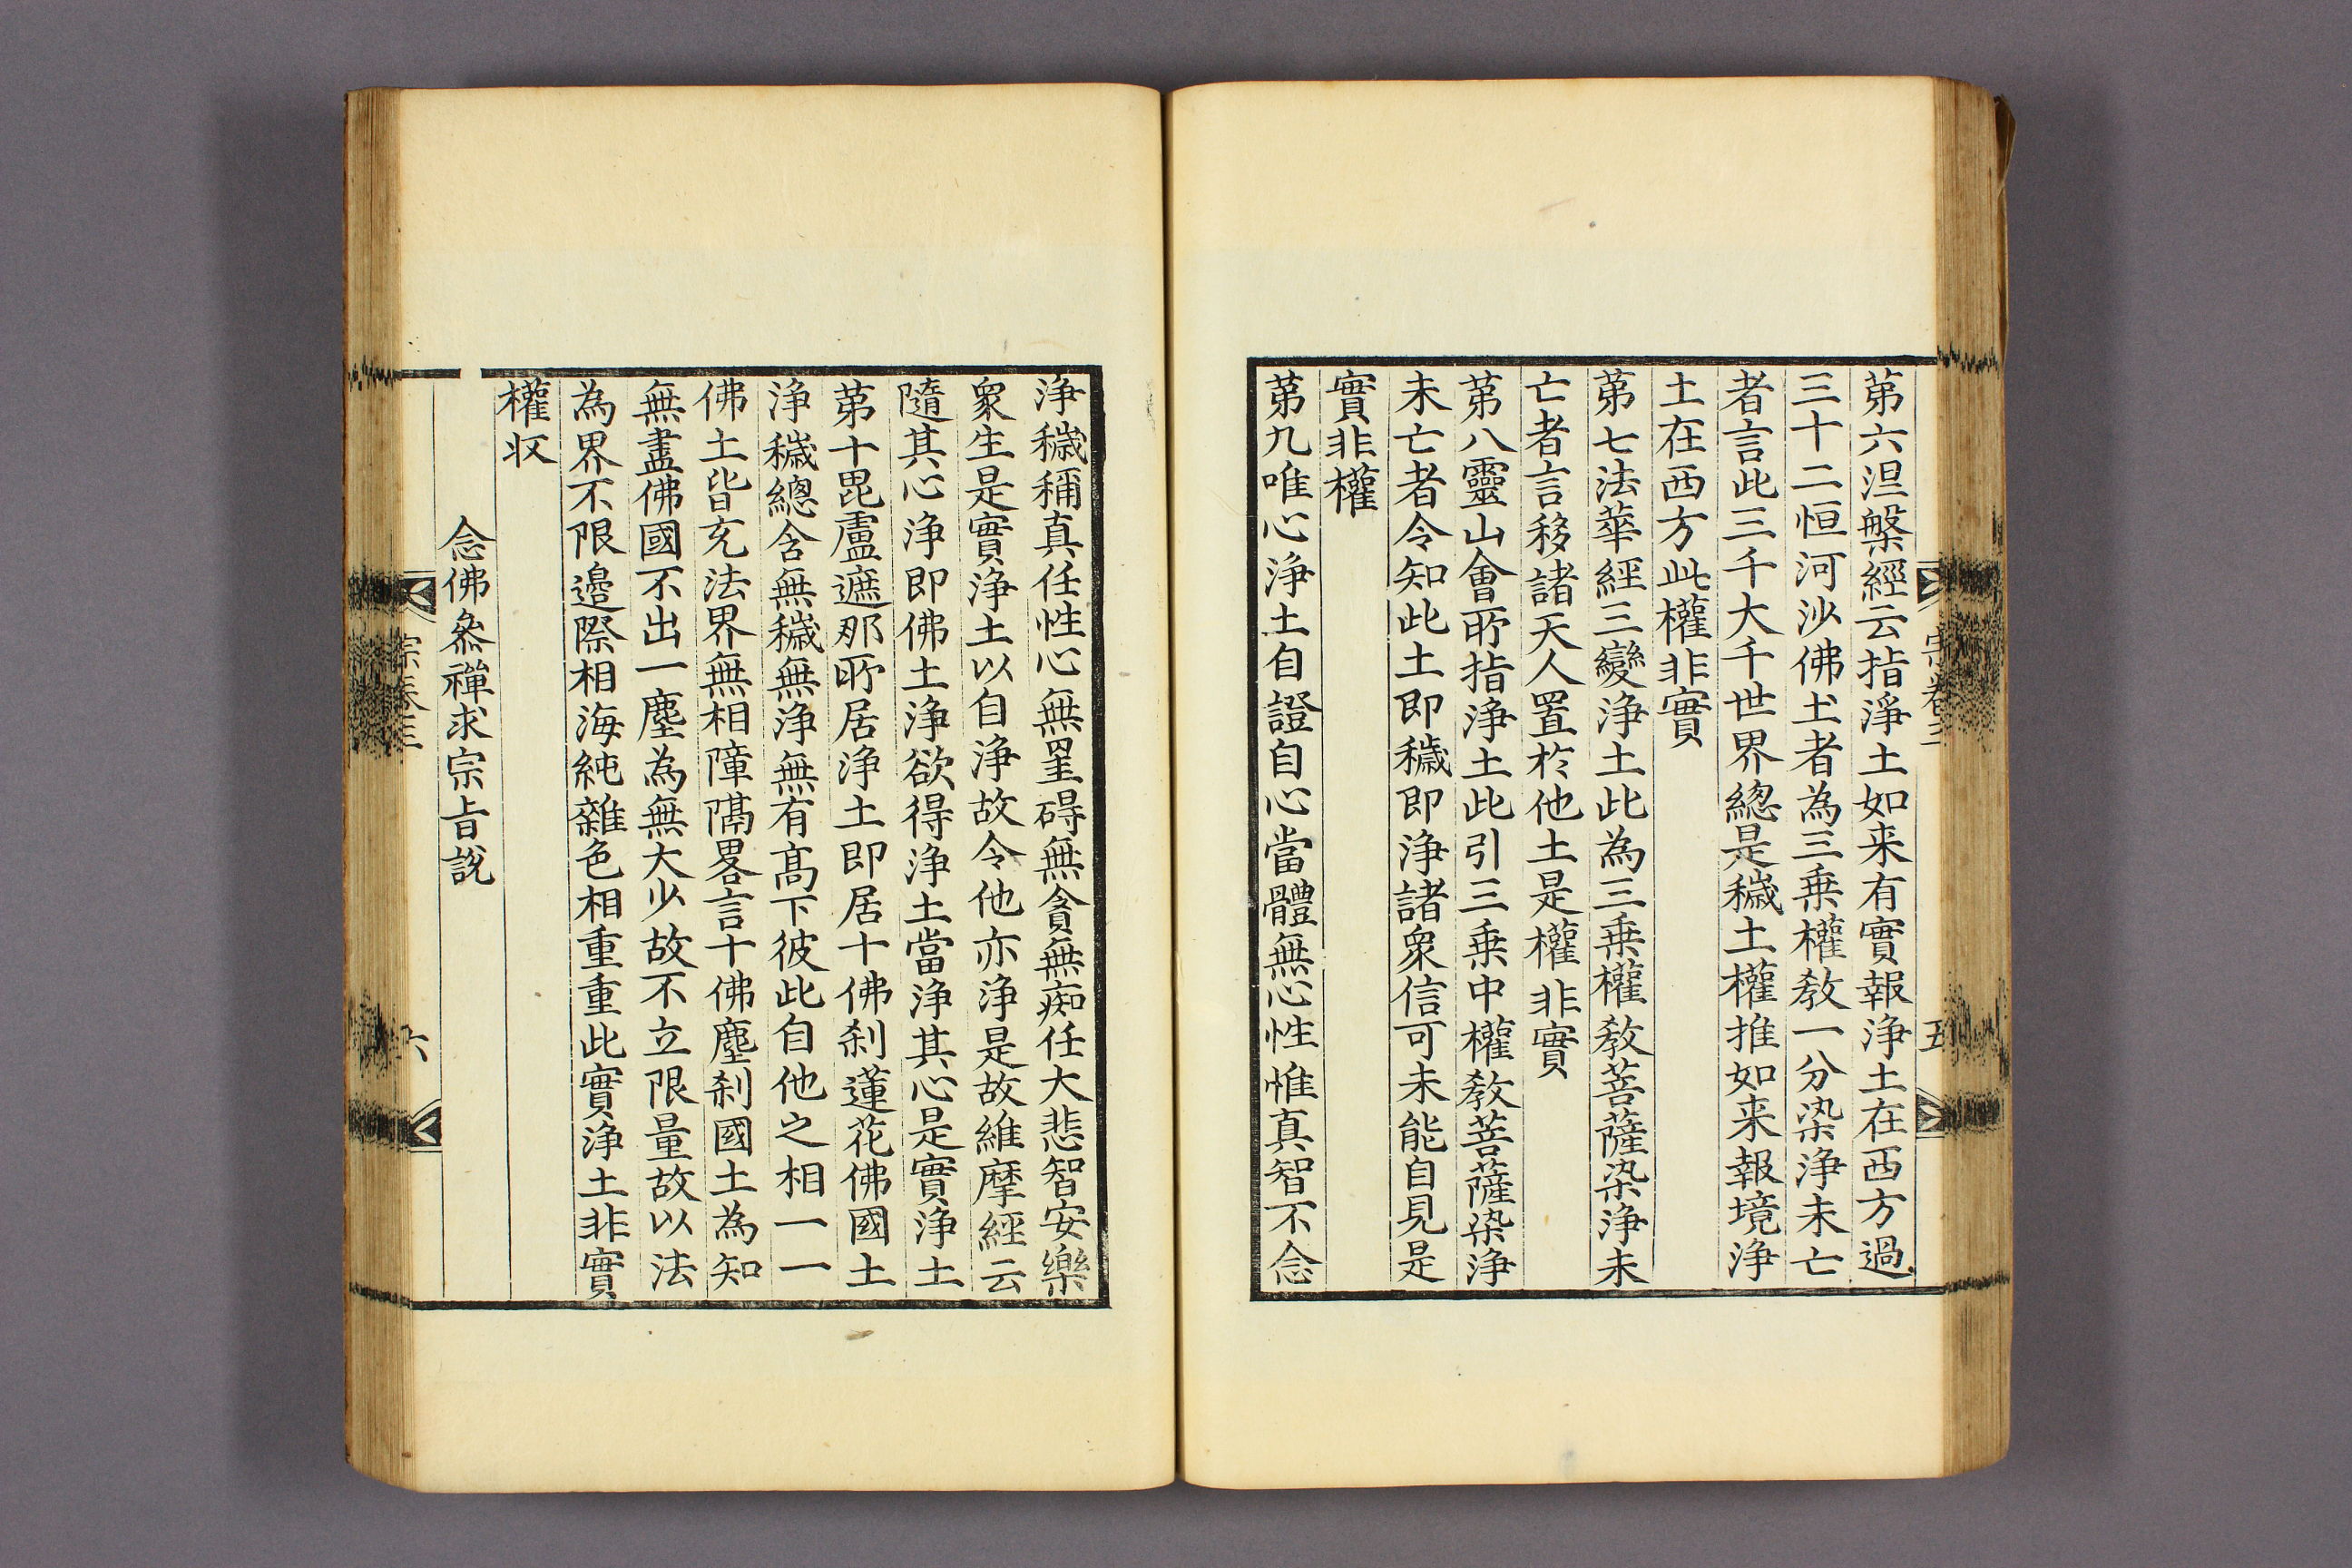 第六涅槃經云指淨土如来有實報浄土在西方過
三十二恒河沙佛𡈽者為三乗權敎一分染浄未亡
者言此三千大千世界總是穢土權推如来報境浄
土在西方此權非實
第七法華經三變浄土此為三乗權敎菩薩染浄未
亡者言移諸天人置於他土是權非實
第八靈山會所指浄土此引三乗中權敎菩薩染浄
未亡者令知此土即穢即浄諸衆信可未能自見是
實非權
第九唯心浄土自證自心當體無心性惟真智不念
浄穢稱真任性心無罣碍無貪無痴任大悲智安樂
衆生是實浄土以自浄故令他亦浄是故維摩經云
隨其心浄即佛土浄欲得浄土當浄其心是實浄土
第十毘盧遮那所居浄土即居十佛刹蓮花佛國土
浄穢總含無穢無浄無有髙下彼此自他之相一一
佛土皆充法界無相障隔畧言十佛塵刹國土為知
無盡佛國不出一塵為無大少故不立限量故以法
為界不限邉際相海純雜色相重重此實浄土非實
權収
念佛叅禪求宗旨說
宗卷三
六
五